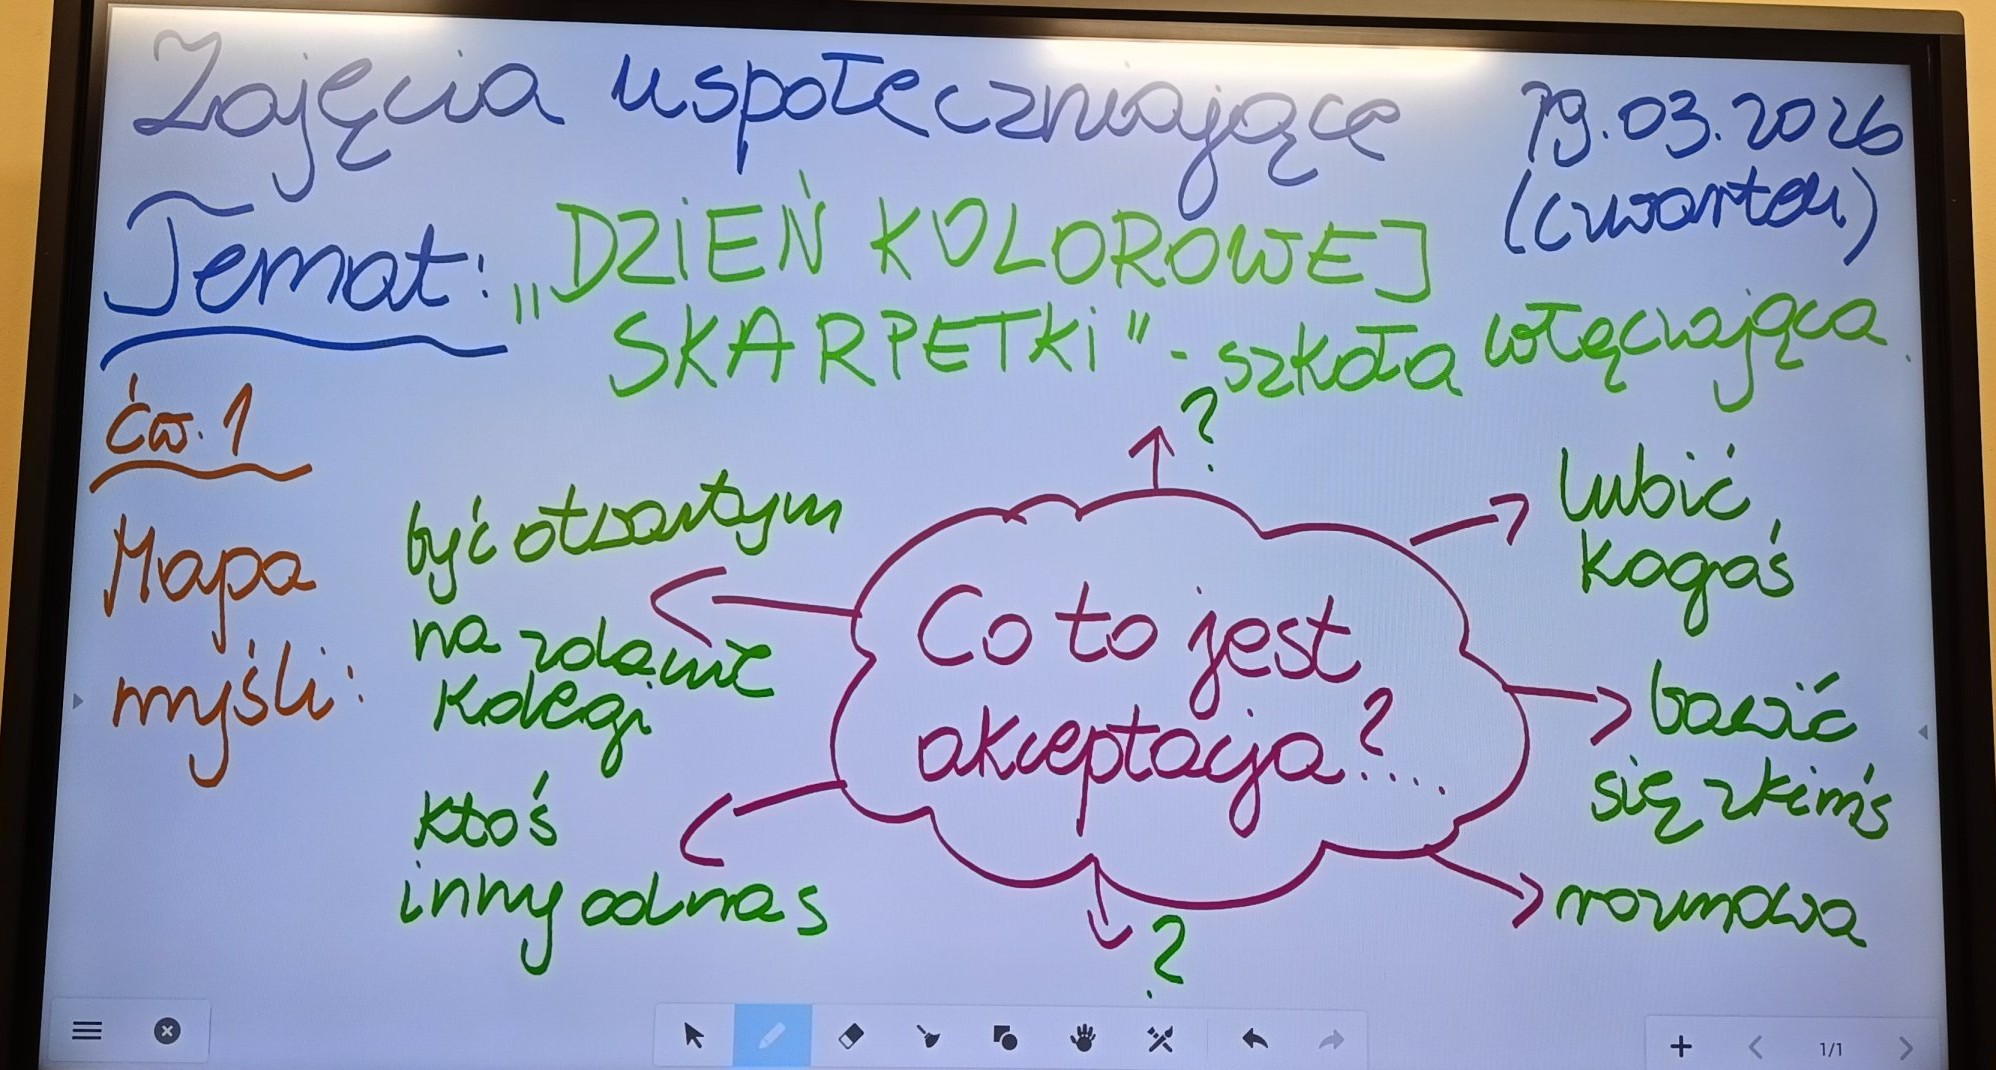 Zajęcia uspołeczniające 19.03.2026
(czwartek)
Temat: „DZIEŃ KOLOROWEJ
SKARPETKI" - szkoła włączająca.
ćw. 1
Mapa
myśli:
Co to jest
akceptacja?....
?
lubić
kogoś
bawić
się z kimś
rozmowa
?
ktoś
inny od nas
być otwartym
na zdanie
kolegi
1/1